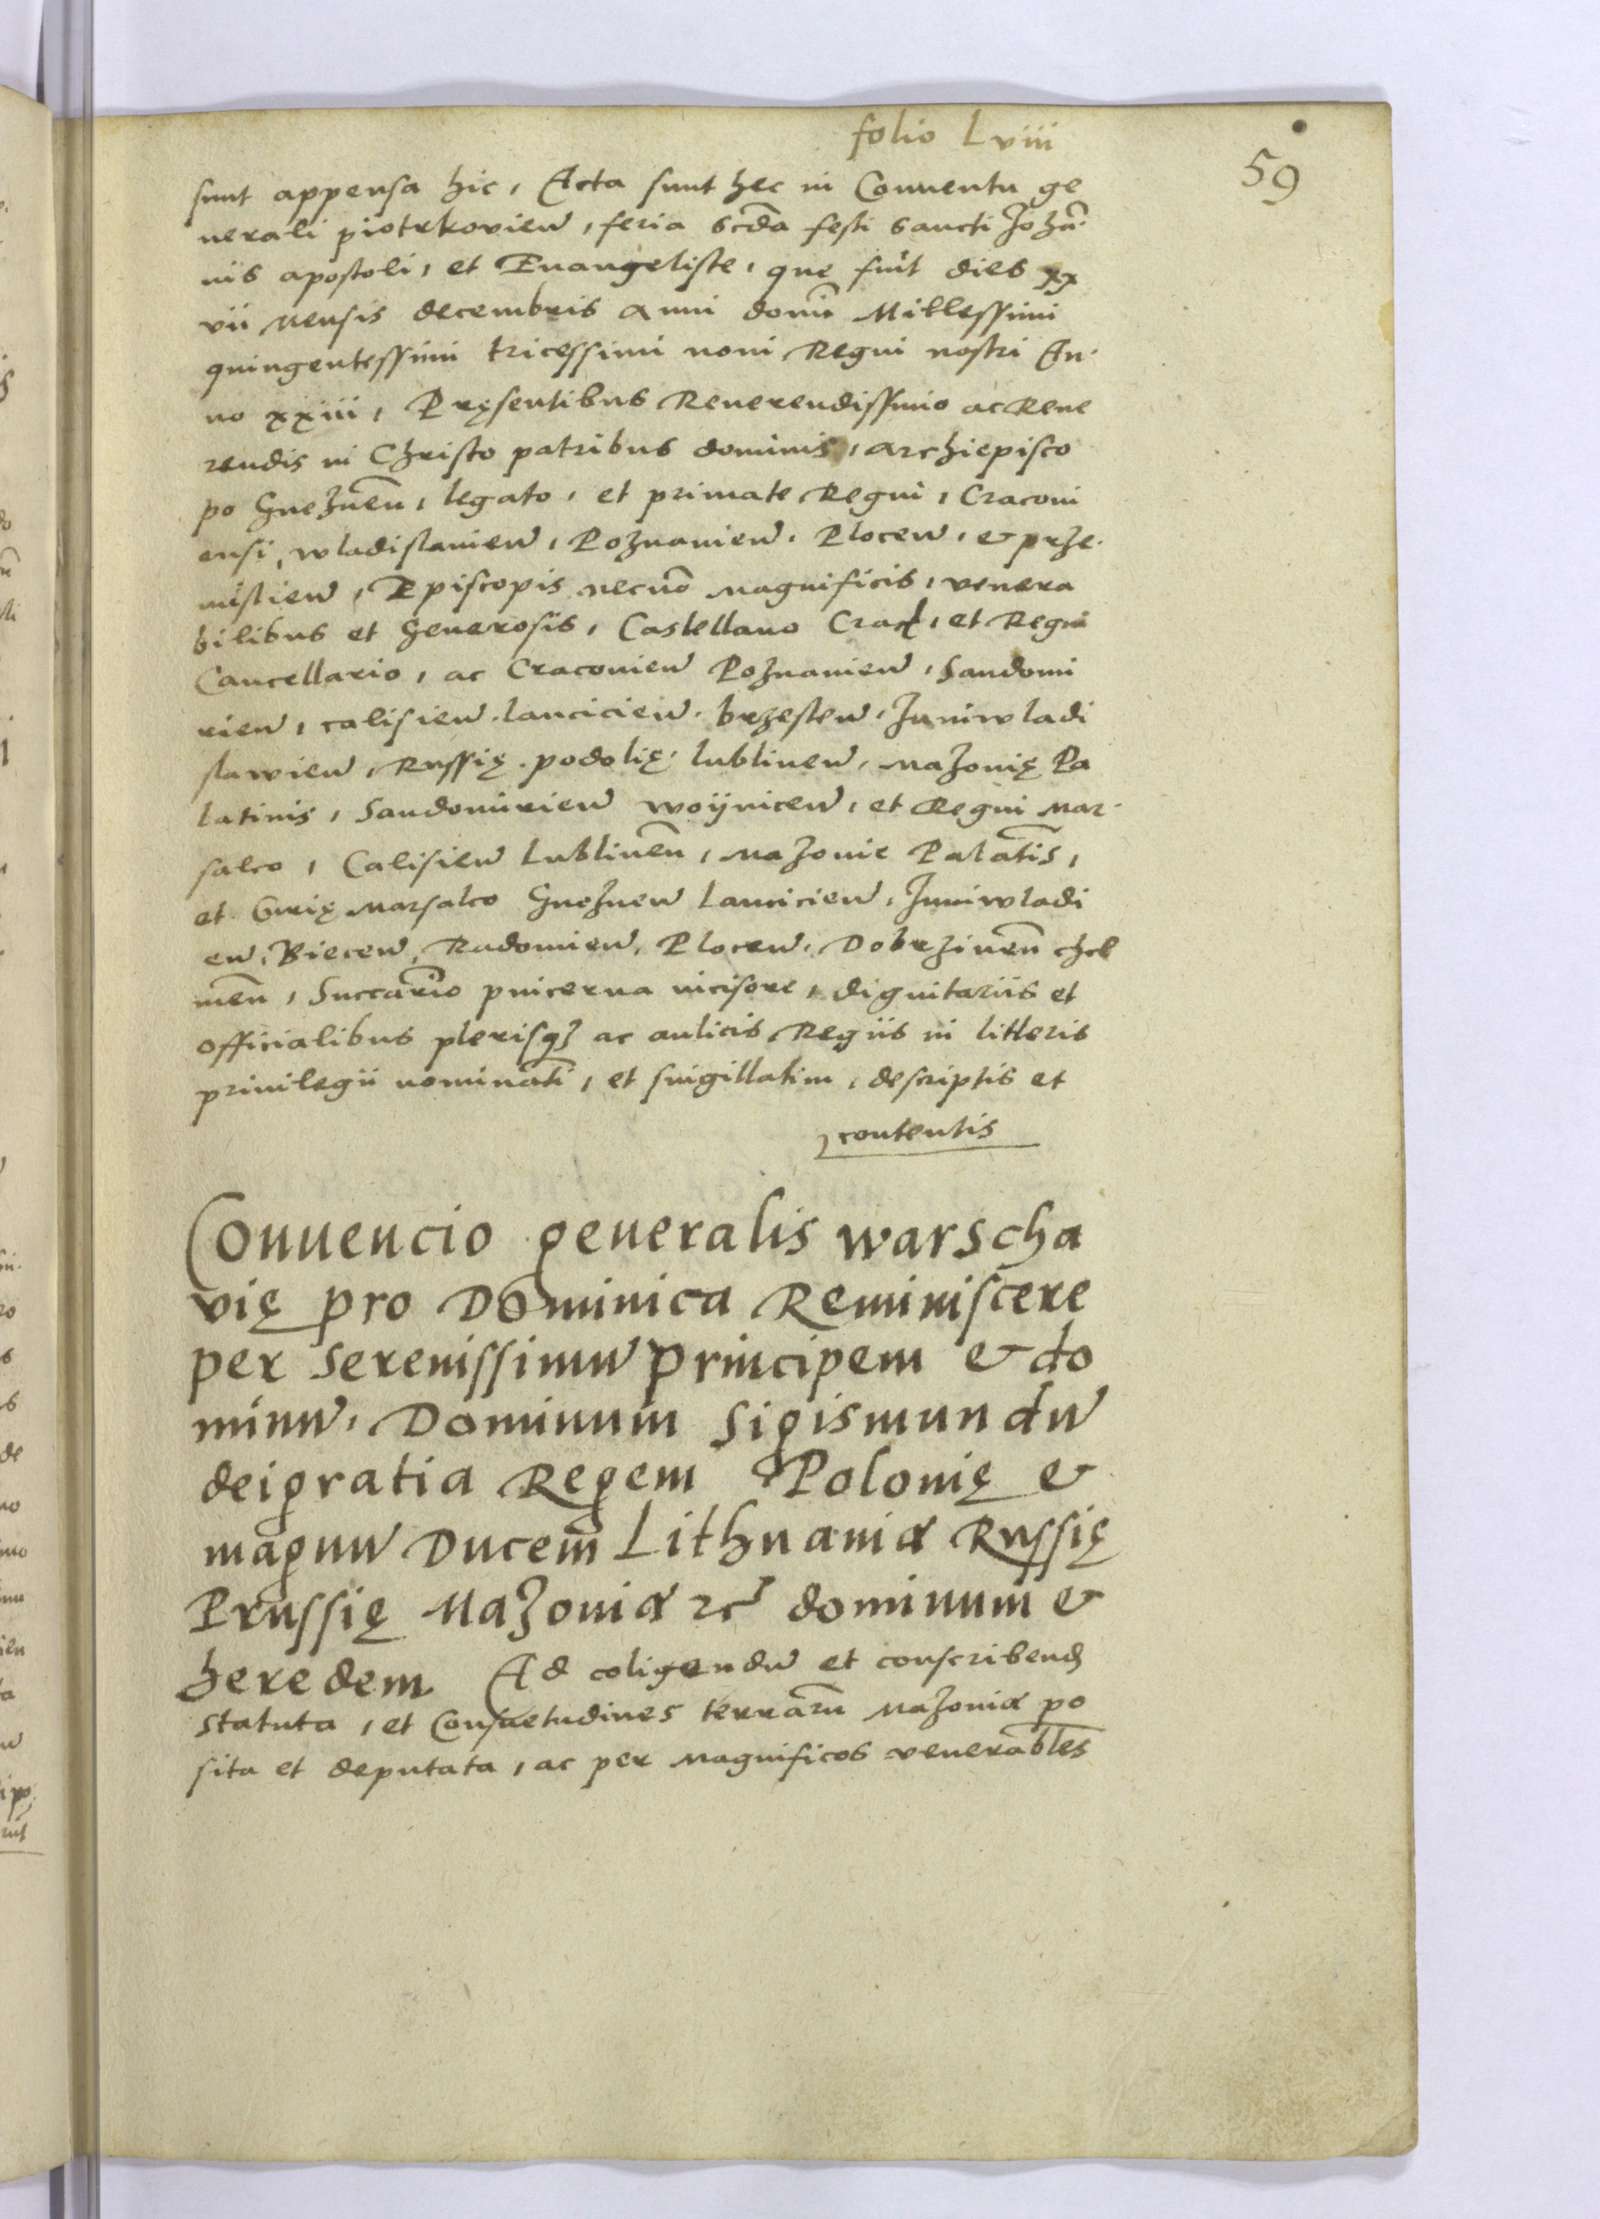 folio Lviii
59
sunt appensa hic, Acta sunt hec in Conuentu ge
nerali piotrkovien̄, feria scd̄a festi sancti Johā-
nis apostoli, et Euangeliste, que fuit dies xx
vii mensis decembris anni domī Millessimi
quingentessimi tricessimi noni Regni nostri An-
no xxiii, Pręsentibus Reuerendissimo ac Reue
rendis in Christo patribus dominis, archiepisco
po Gneznen̄, legato, et primate Regni, Craconi
ensi, wladislauien̄, Poznanien̄, Plocen̄, & prze-
mislien̄, Episcopis necnō magnificis, venera
bilibus et Generosis, Castellano Crac, et Regni
Cancellario, ac Craconien̄ Poznanien̄, Sandomi
rien̄, calisien̄, lancicien̄, brzesten̄, Juniwladi
slawien̄, Russię, podolię, lublinen̄, Mazouię Pa
latinis, Sandomirien̄ woijnicen̄, et Regni Mar-
salco, Calisien̄ Lublinen̄, Mazouie Palatīs,
et Curię Marsalco Gneznen̄ Lancicien̄, Juniwladi
en̄, Biecen̄, Radomien̄, Plocen̄, Dobrzinen̄ chel
men̄, Succario pincerna incisore, dignitariis et
officialibus plerisq3 ac aulicis Regiis in litteris
priuilegii nominatī, et singillatim, descriptis et
contentis
Conuencio generalis warscha
vię pro Dominica Reminiscere
per Serenissimū principem & do
minū, Dominum Sigismundū
dei gratia Regem Polonię &
magnū Ducem Lithuaniæ Russię
Prussię Mazouiæ etc dominum &
heredem Ad coligendū et conscribend
statuta, et Consuetudines terrarū Mazouiæ po
sita et deputata, ac per magnificos venerabłes